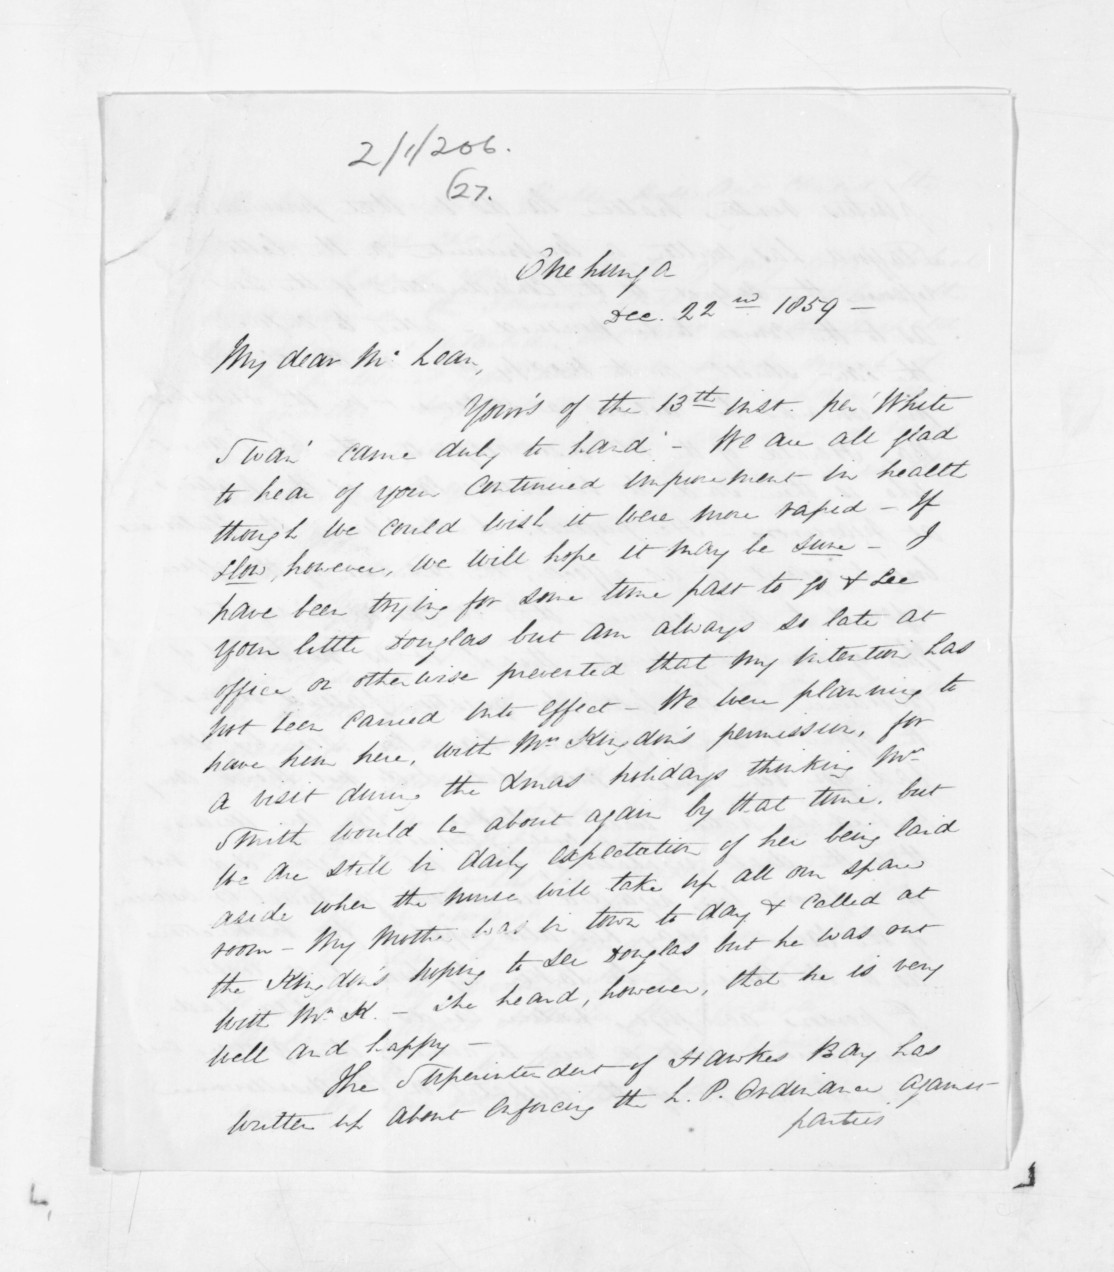 2/1/206.
(27.
Onehunga
Dec. 22nd 1859 -
My dear McLean,
Your's of the 13th inst. per 'White
Swan' came duly to hand. - We are all glad
to hear of your continued improvement in health
though we could wish it were more rapid - If
slow, however, we will hope it may be sure - I
have been trying for some time past to go & see
your little Douglas but am always so late at
office or otherwise prevented that my intention has
not been carried into effect - We were planning to
have him here, with Mrs Kingdon's permission, for
a visit during the Xmas holidays thinking Mrs
Smith would be about again by that time, but
we are still in daily expectation of her being laid
aside when the nurse will take up all our spare
room - My Mother was in town to day & called at
the Kingdon's hoping to see Douglas but he was out
with Mr K. - She heard, however, that he is very
well and happy -
The Superintendent of Hawkes Bay has
written up about enforcing the L. P. Ordinance against
parties